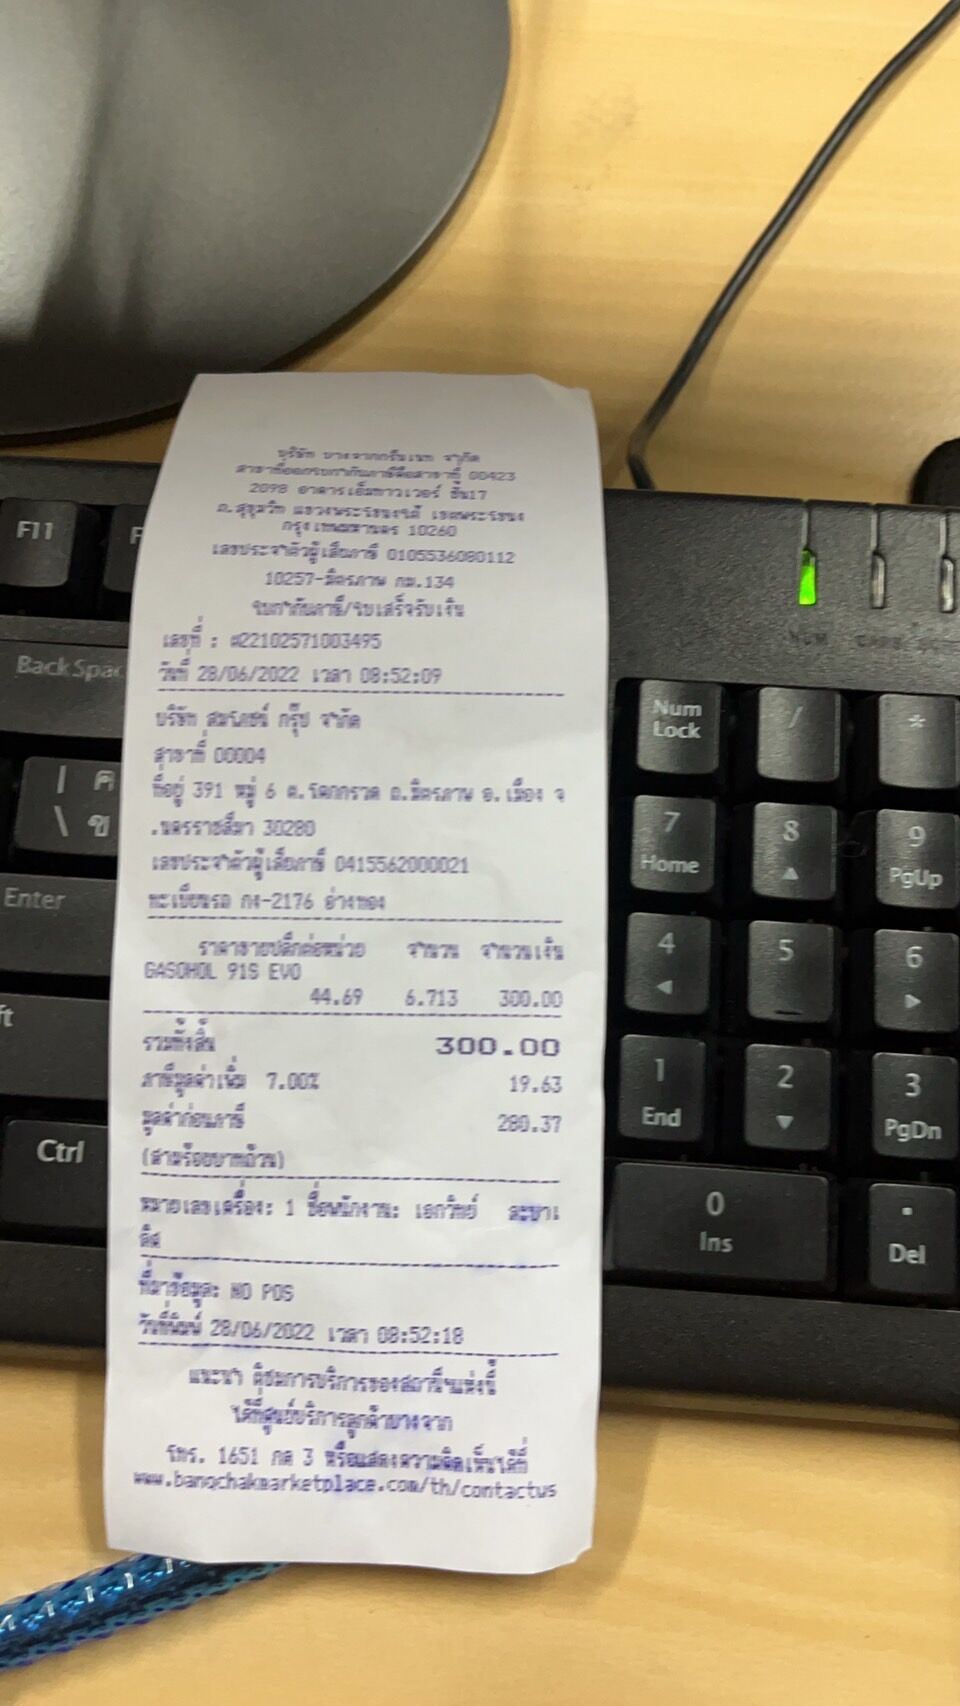 บริษัท บางจากกรีนเนท จำกัด
สาขาที่ออกใบกำกับภาษีคือสาขาที่ 00423
2098 อาคารเอ็มทาวเวอร์ ชั้น17
ถ.สุขุมวิท แขวงพระโขนงใต้ เขตพระโขนง
กรุงเทพมหานคร 10260
เลขประจำตัวผู้เสียภาษี 0105536080112
10257-มิตรภาพ กม.134
ใบกำกับภาษี/ใบเสร็จรับเงิน
เลขที่ : #22102571003495
วันที่ 28/06/2022 เวลา 08:52:09
บริษัท สมโภชน์ กรุ๊ป จำกัด
สาขาที่ 00004
ที่อยู่ 391 หมู่ 6 ต.โคกกรวด ถ.มิตรภาพ อ.เมือง จ
.นครราชสีมา 30280
เลขประจำตัวผู้เสียภาษี 0415562000021
ทะเบียนรถ กง-2176 อ่างทอง
ราคาขายปลีกต่อหน่วย จำนวน จำนวนเงิน
GASOHOL 91S EVO
44.69 6.713 300.00
รวมทั้งสิ้น 300.00
ภาษีมูลค่าเพิ่ม 7.00% 19.63
มูลค่าก่อนภาษี 280.37
(สามร้อยบาทถ้วน)
หมายเลขเครื่อง: 1 ชื่อพนักงาน: เอกวิทย์
ที่มาข้อมูล: NO POS
วันที่พิมพ์ 28/06/2022 เวลา 08:52:18
แนะนำ ติชมการบริการของสถานีฯแห่งนี้
ได้ที่ศูนย์บริการลูกค้าบางจาก
โทร. 1651 กด 3 หรือแสดงความคิดเห็นได้ที่
www.bangchakmarketplace.com/th/contactus
F11
Back Spac
| ฅ
\ ฃ
Enter
ft
Ctrl
NUM
Num
Lock
/
*
7
Home
8
9
PgUp
4
5
6
1
End
2
3
PgDn
0
Ins
.
Del